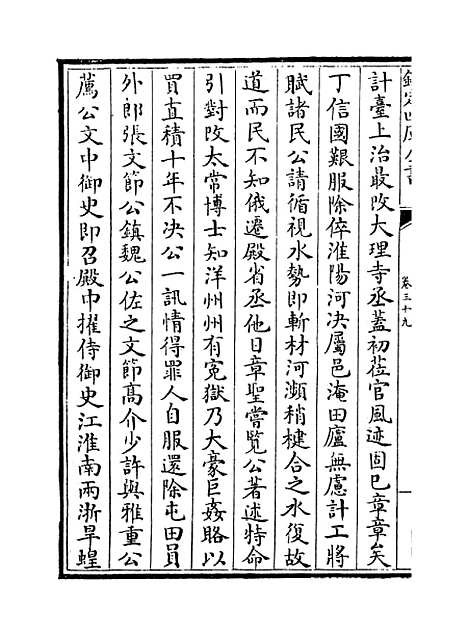 欽定四庫全書
卷三十九
計臺上治最改大理寺丞蓋初莅官風迹固已章章矣
丁信國艱服除倅淮陽河決屬邑淹田廬無慮計工將
賦諸民公請循視水勢即斬材河瀕稍楗合之水復故
道而民不知俄遷殿省丞他日章聖嘗覽公著述特命
引對改太常博士知洋州州有寃獄乃大豪巨姦賂以
買直積十年不决公一訊情得罪人自服還除屯田員
外郎張文節公鎮魏公佐之文節髙介少許與雅重公
薦公文中御史即召殿中擢侍御史江淮南兩浙旱蝗